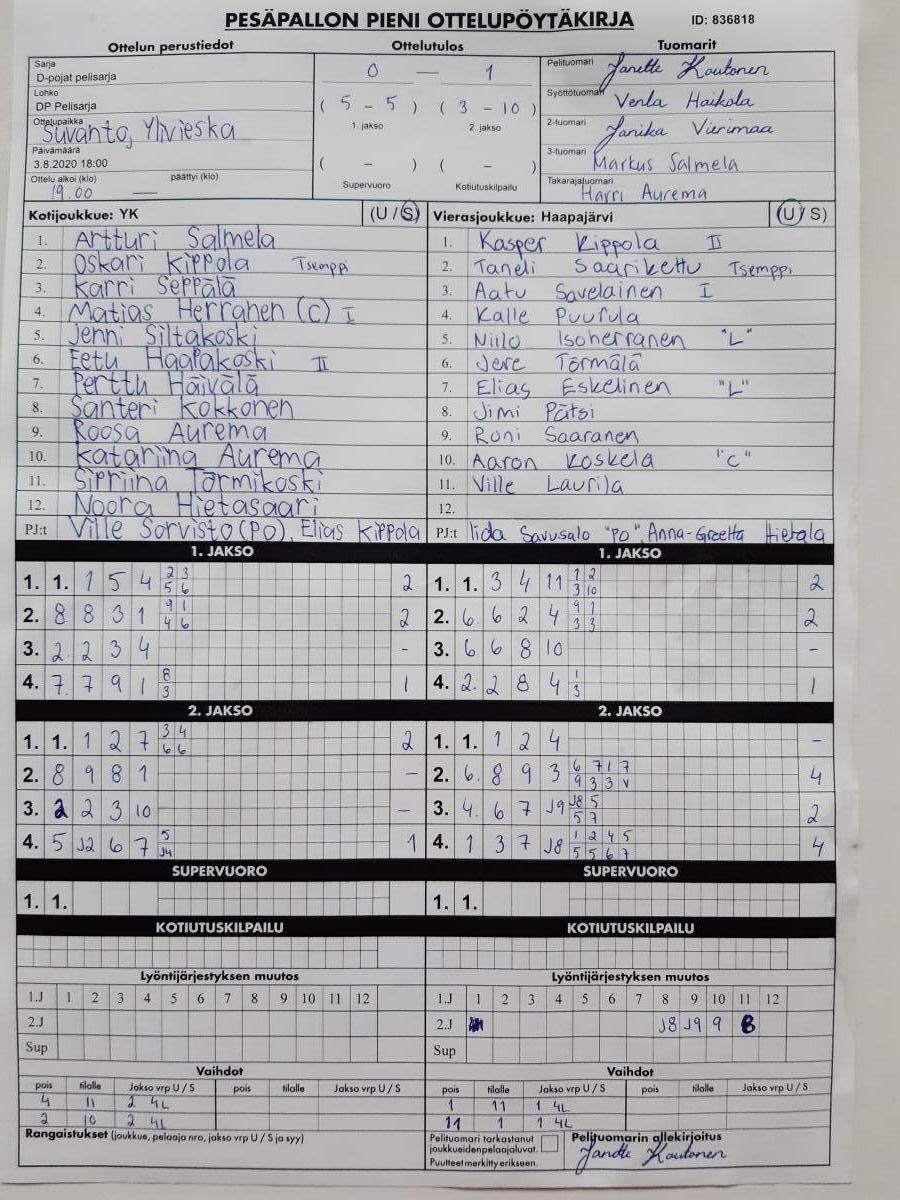 PESÄPALLON PIENI OTTELUPÖYTÄKIRJA ID: 836818
Ottelun perustiedot Ottelutulos Tuomarit
Sarja
D-pojat pelisarja
Lohko
DP Pelisarja
Ottelupaikka
Suvanto, Ylivieska
Päivämäärä
3.8.2020 18:00
Ottelu alkoi (klo) päättyi (klo)
19.00 —
0 — 1
( 5 - 5 ) ( 3 - 10 )
1. jakso 2. jakso
( - ) ( - )
Supervuoro Kotiutuskilpailu
Pelituomari Janette Kautonen
Syöttötuomari Venla Haikola
2-tuomari Janika Vierimaa
3-tuomari Markus Salmela
Takarajatuomari Harri Aurema
Kotijoukkue: YK (U / S) Vierasjoukkue: Haapajärvi (U / S)
1. Artturi Salmela 1. Kasper Kippola II
2. Oskari Kippola Tsemppi 2. Taneli Saarikettu Tsemppi
3. Karri Seppälä 3. Aatu Savelainen I
4. Matias Herranen (C) I 4. Kalle Puurula
5. Jenni Siltakoski 5. Niilo Isoherranen "L"
6. Eetu Haapakoski II 6. Jere Törmälä
7. Perttu Häivälä 7. Elias Eskelinen "L"
8. Santeri Kokkonen 8. Jimi Pätsi
9. Roosa Aurema 9. Roni Saaranen
10. Katariina Aurema 10. Aaron Koskela "C"
11. Sipriina Törmikoski 11. Ville Laurila
12. Noora Hietasaari 12.
PJ:t Ville Sorvisto (PO), Elias Kippola PJ:t Iida Savusalo "PO", Anna-Greetta Hietala
1. JAKSO 1. JAKSO
1. 1. 1 5 4 2 3 5 6 2 1. 1. 3 4 11 1 2 3 10 2
2. 8 8 3 1 9 1 4 6 2 2. 6 6 2 4 9 1 3 3 2
3. 2. 2 3 4 - 3. 6 6 8 10 -
4. 7. 7 9 1 8 3 1 4. 2. 2 8 4 1 3 1
2. JAKSO 2. JAKSO
1. 1. 1 2 7 3 4 6 6 2 1. 1. 1 2 4 -
2. 8 9 8 1 - 2. 6. 8 9 3 6 7 1 7 9 3 3 V 4
3. 2 2 3 10 - 3. 4. 6 7 J9 J8 5 5 7 2
4. 5 J2 6 7 5 J4 1 4. 1 3 7 J8 1 2 4 5 5 5 6 7 4
SUPERVUORO SUPERVUORO
1. 1. 1. 1.
KOTIUTUSKILPAILU KOTIUTUSKILPAILU
Lyöntijärjestyksen muutos Lyöntijärjestyksen muutos
1.J 1 2 3 4 5 6 7 8 9 10 11 12 1.J 1 2 3 4 5 6 7 8 9 10 11 12
2.J 2.J J8 J9 9 8
Sup Sup
Vaihdot Vaihdot
pois tilalle Jakso vrp U / S pois tilalle Jakso vrp U / S pois tilalle Jakso vrp U / S pois tilalle Jakso vrp U / S
4 11 2 4L 1 11 1 4L
2 10 2 4L 11 1 1 4L
Rangaistukset (joukkue, pelaaja nro, jakso vrp U / S ja syy)
Pelituomari tarkastanut
joukkueiden pelaajaluvat.
Puutteet merkitty erikseen.
Pelituomarin allekirjoitus
Janette Kautonen